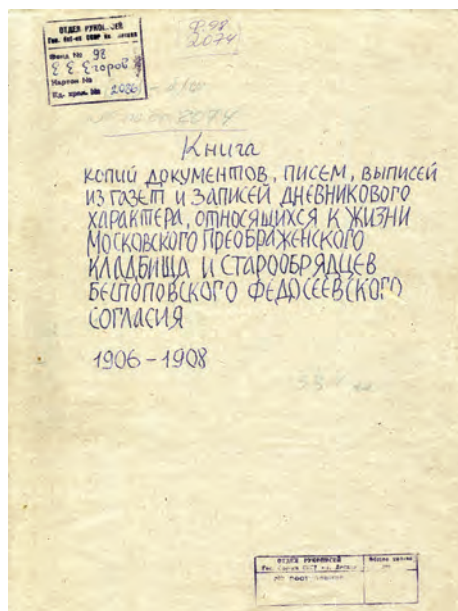 ОТДЕЛ РУКОПИСЕЙ
Фонд № 98
Е Е Егоров
Картон №
Ед. хран. №
Ф.98
2074
2074
Книга
копий документов, писем, выписей
из газет и записей дневникового
характера, относящихся к жизни
Московского Преображенского
кладбища и старообрядцев
беспоповского федосеевского
согласия
1906-1908
ОТДЕЛ РУКОПИСЕЙ